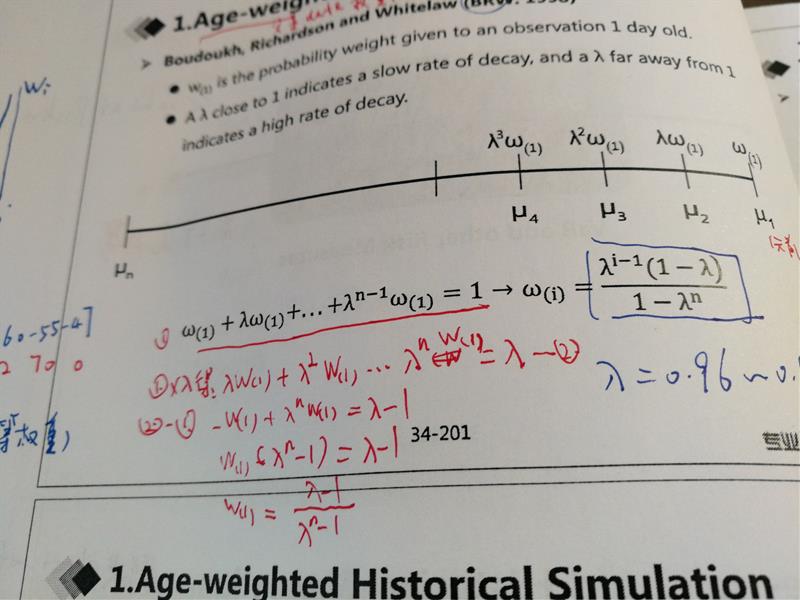 1.Age-weig
Boudoukh, Richardson and Whitelaw (BRW:
w(1) is the probability weight given to an observation 1 day old.
A λ close to 1 indicates a slow rate of decay, and a λ far away from 1
indicates a high rate of decay.
Wi
λ³ω(1) λ²ω(1) λω(1) ω(1)
μn μ4 μ3 μ2 μ1
① ω(1) + λω(1)+…+λⁿ⁻¹ω(1) = 1 → ω(i) = λⁱ⁻¹(1 − λ) / 1 − λⁿ
60-55-4]
2 70 0
①×λ得: λW(1) + λ²W(1) ... λⁿ W(1) = λ — ②
λ = 0.96 ~ 0.
②-① -W(1) + λⁿW(1) = λ-1
W(1) (λⁿ-1) = λ-1
34-201
W(1) = λ-1 / λⁿ-1
专业
1.Age-weighted Historical Simulation